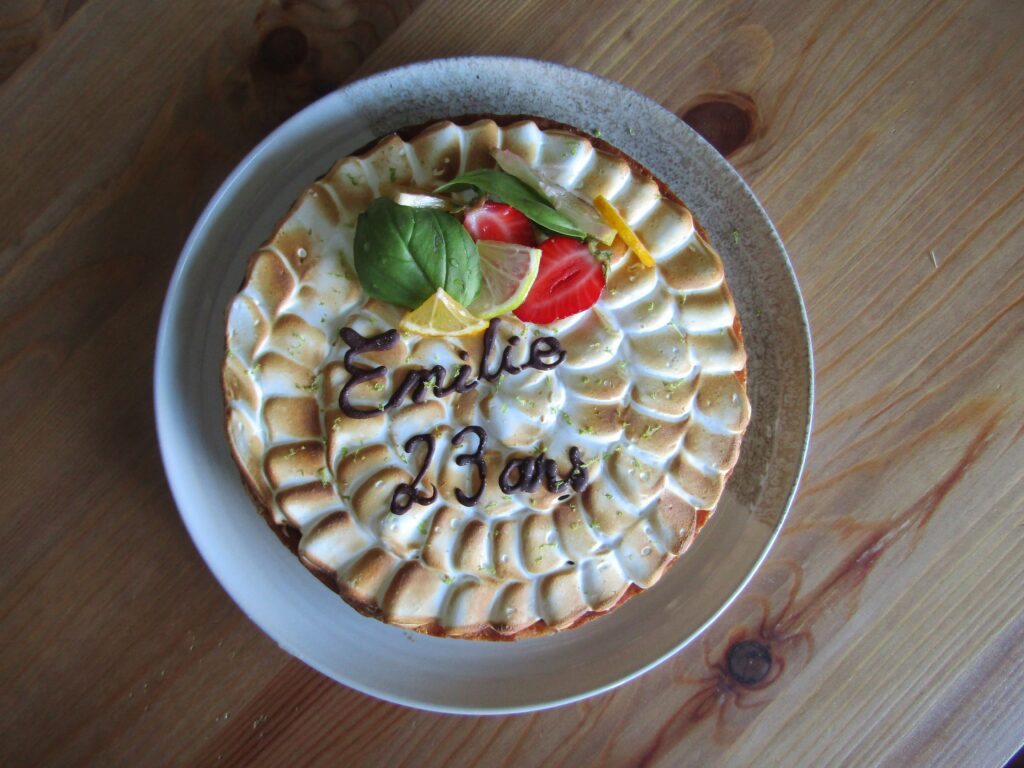 Emilie
23 ans